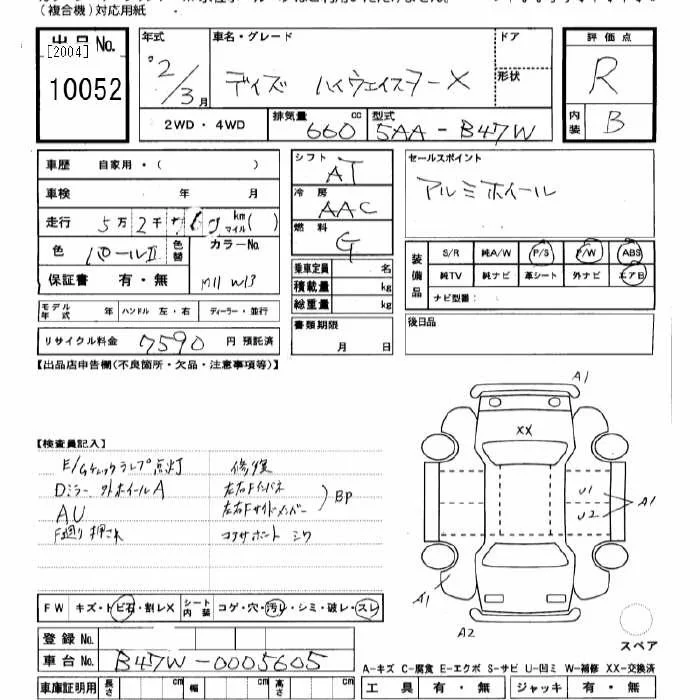 (複合機)対応用紙
出品No.
[2004]
10052
年式
'2/3月
車名・グレード
デイズ ハイウェイスターX
ドア
形状
評価点
R
内装
B
2WD・4WD
排気量
660
cc
型式
5AA-B47W
車歴 自家用・( )
車検 年 月
走行 5万2千
km
マイル
( )
色 パールII
色替
カラーNo.
保証書 有・無
M11 W13
モデル年式 年 ハンドル 左・右 ディーラー・並行
リサイクル料金 7590 円 預託済
シフト
AT
冷房
AAC
燃料
G
乗車定員 名
積載量 kg
総重量 kg
書類期限
月 日
セールスポイント
アルミホイール
装備品
S/R 純A/W P/S P/W ABS
純TV 純ナビ 革シート 外ナビ エアB
ナビ型番:
後日品
【出品店申告欄(不良箇所・欠品・注意事項等)】
【検査員記入】
E/Gチェックランプ点灯
Dミラー 外ホイールA
AU
F廻り押され
修復
左右Fインパネ
左右Fサイドメンバー
BP
コアサポート シワ
A1
XX
U1
U2
A1
A1
A2
スペア
FW キズ・トビ石・割レX
シート内装
コゲ・穴・汚レ・シミ・破レ・スレ
登録No.
車台No. B47W-0005605
車庫証明用 長さ cm 幅 cm 高さ cm
A-キズ C-腐食 E-エクボ S-サビ U-凹ミ W-補修 XX-交換済
工具 有・無 ジャッキ 有・無